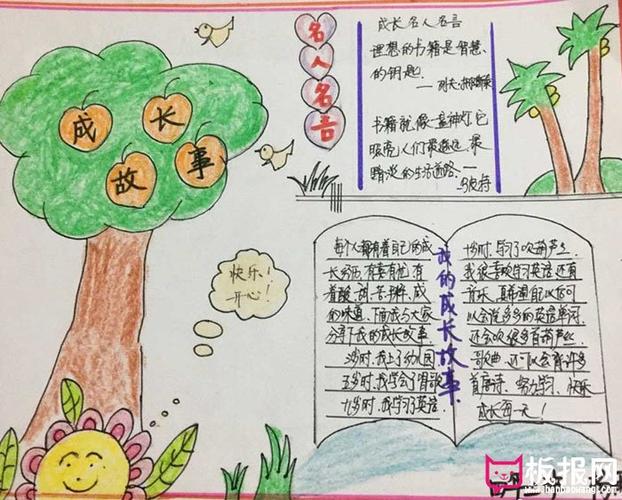 成长故事
名人名言
成长名人名言
理想的书籍是智慧
的钥匙
书籍就像一盏神灯,它
照亮人们最遥远、最
暗淡的生活道路
快乐!
开心!
我的成长故事
每个人都有着自己的成
长经历,有喜有忧,有
着酸、甜、苦、辣、咸
的味道,下面我与大家
分享下我的成长故事。
3岁时,我上了幼儿园
五岁时,我学会了唱歌
九岁时,我学习了英语
十岁时,学习了吹葫芦丝。
我很喜欢学习英语,还有
音乐,真希望自己以后可
以会说多多的英语单词,
还会吹很多首葫芦丝
歌曲,还可以会背许多
首唐诗。努力学习,快乐
成长每一天!
板报网
www.banbaowang.com